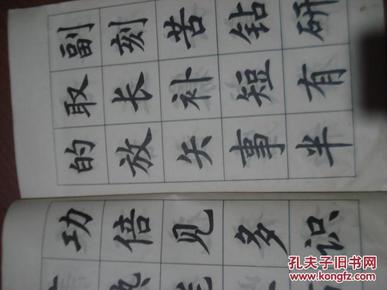 副刻苦钻研
取长补短有
的放矢事半
功倍见多识
孔夫子旧书网